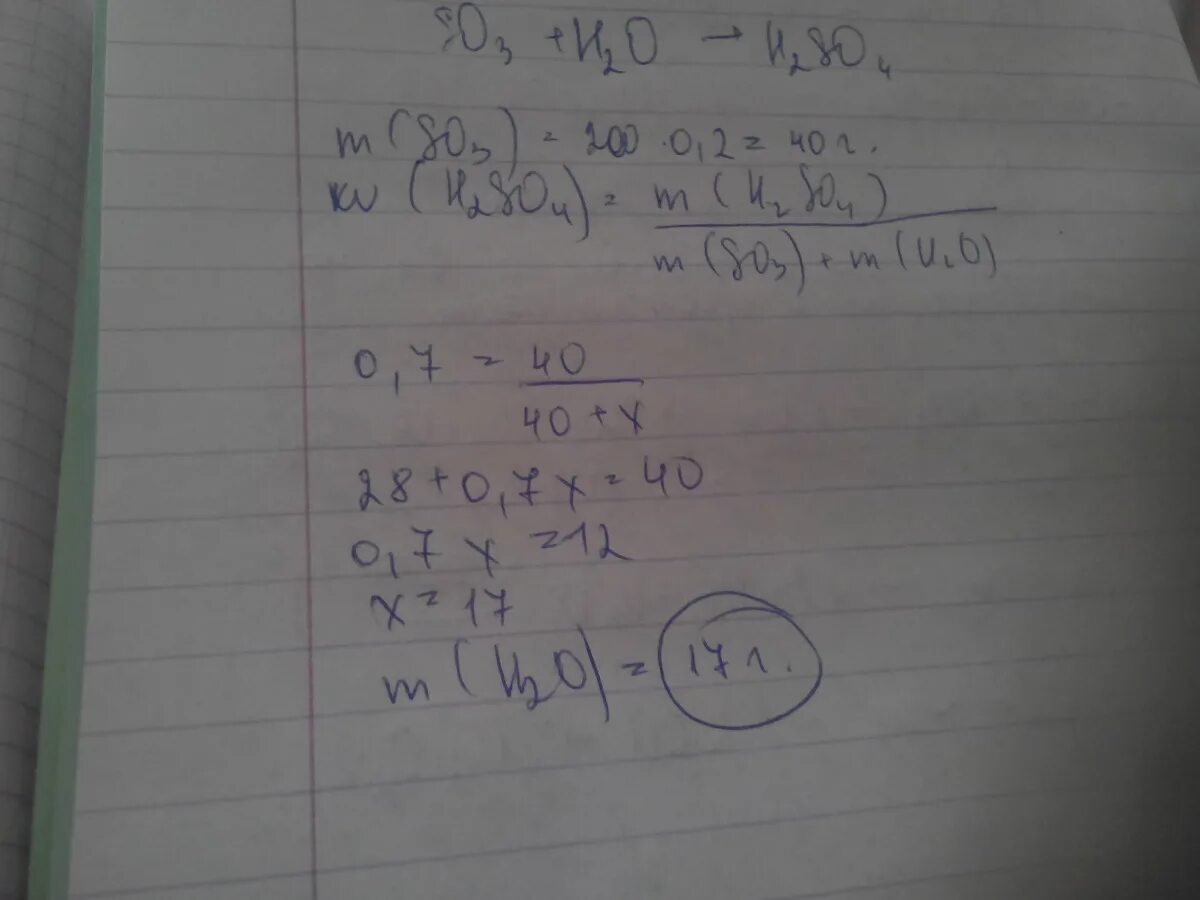 SO₃ + H₂O → H₂SO₄
m(SO₃) = 200 · 0,2 = 40 г.
w(H₂SO₄) = m(H₂SO₄) / m(SO₃) + m(H₂O)
0,7 = 40 / 40 + x
28 + 0,7x = 40
0,7x = 12
x = 17
m(H₂O) = 17 г.